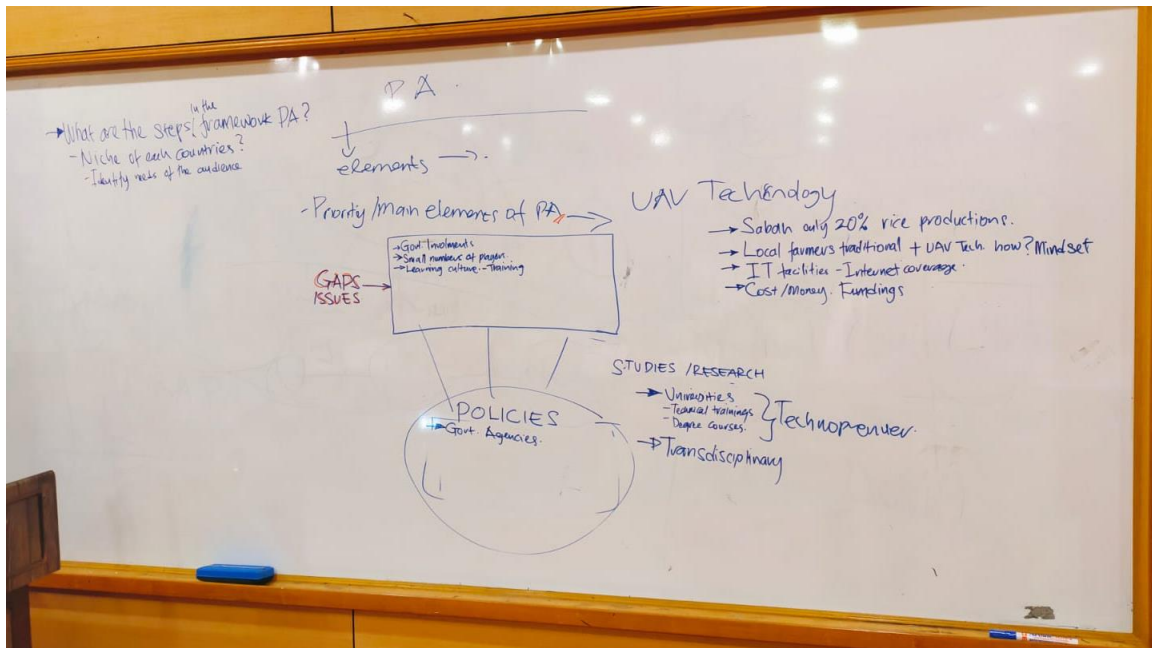 PA
in the
→What are the steps/framework PA?
- Niche of each countries?
- Identify needs of the audience
elements →
- Priority/main elements of PA →
→Govt. Involments
→Small numbers of player.
→Learning culture - Training
GAPS →
ISSUES
UAV Technology
→ Sabah only 20% rice productions.
→ Local farmers traditional + UAV Tech. how? Mindset
→ IT facilities - Internet coverage.
→ Cost/Money. Fundings
POLICIES
→ Govt. Agencies.
STUDIES / RESEARCH
→ Universities
- Technical trainings
- Degree courses.
} Technoprenuer.
→ Transdisciplinary